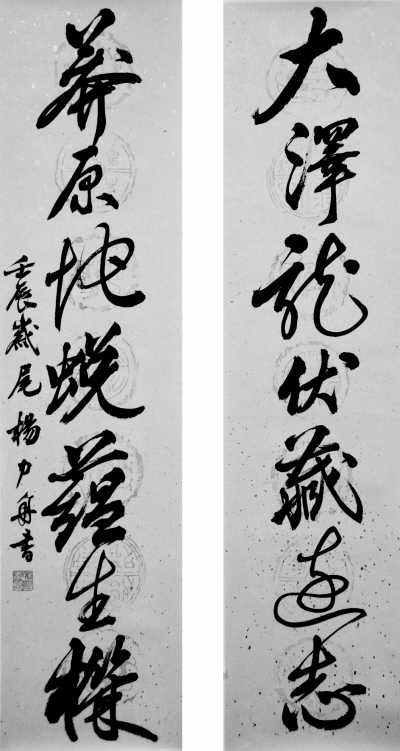 大澤龍伏藏遠志
莽原地蜕蘊生機
壬辰歲尾楊力舟書